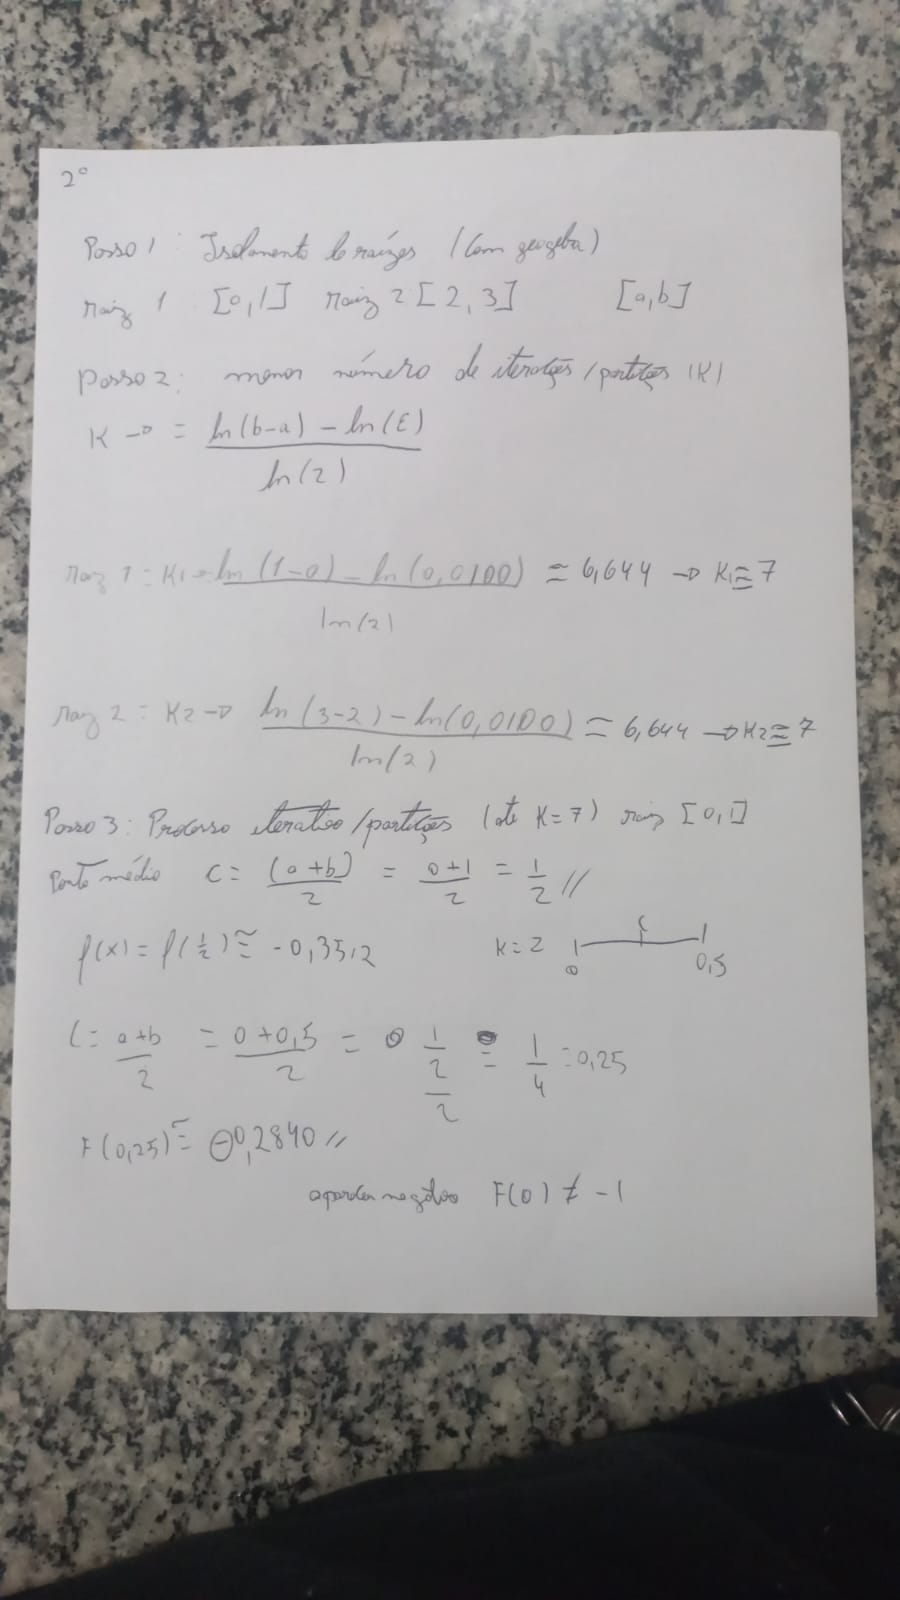 2°
Passo 1: Isolamento de raízes (com geogebra)
raiz 1 [0,1] raiz 2 [2,3] [a,b]
Passo 2: menor número de iterações/partições (K)
K → = ln(b-a) - ln(ε)
ln(2)
raiz 1 = K1 → ln(1-0) - ln(0,0100) ≅ 6,644 → K1 ≅ 7
ln(2)
raiz 2 = K2 → ln(3-2) - ln(0,0100) ≅ 6,644 → K2 ≅ 7
ln(2)
Passo 3: Processo iterativo/partições (até K=7) raiz [0,1]
Ponto médio C = (a+b)/2 = 0+1/2 = 1/2 //
f(x) = f(1/2) ≅ -0,3512 K=2 0 C 0,5
C = a+b/2 = 0+0,5/2 = 1/2/2 = 1/4 = 0,25
F(0,25) ≅ -0,2840 //
negativo F(0) ≠ -1